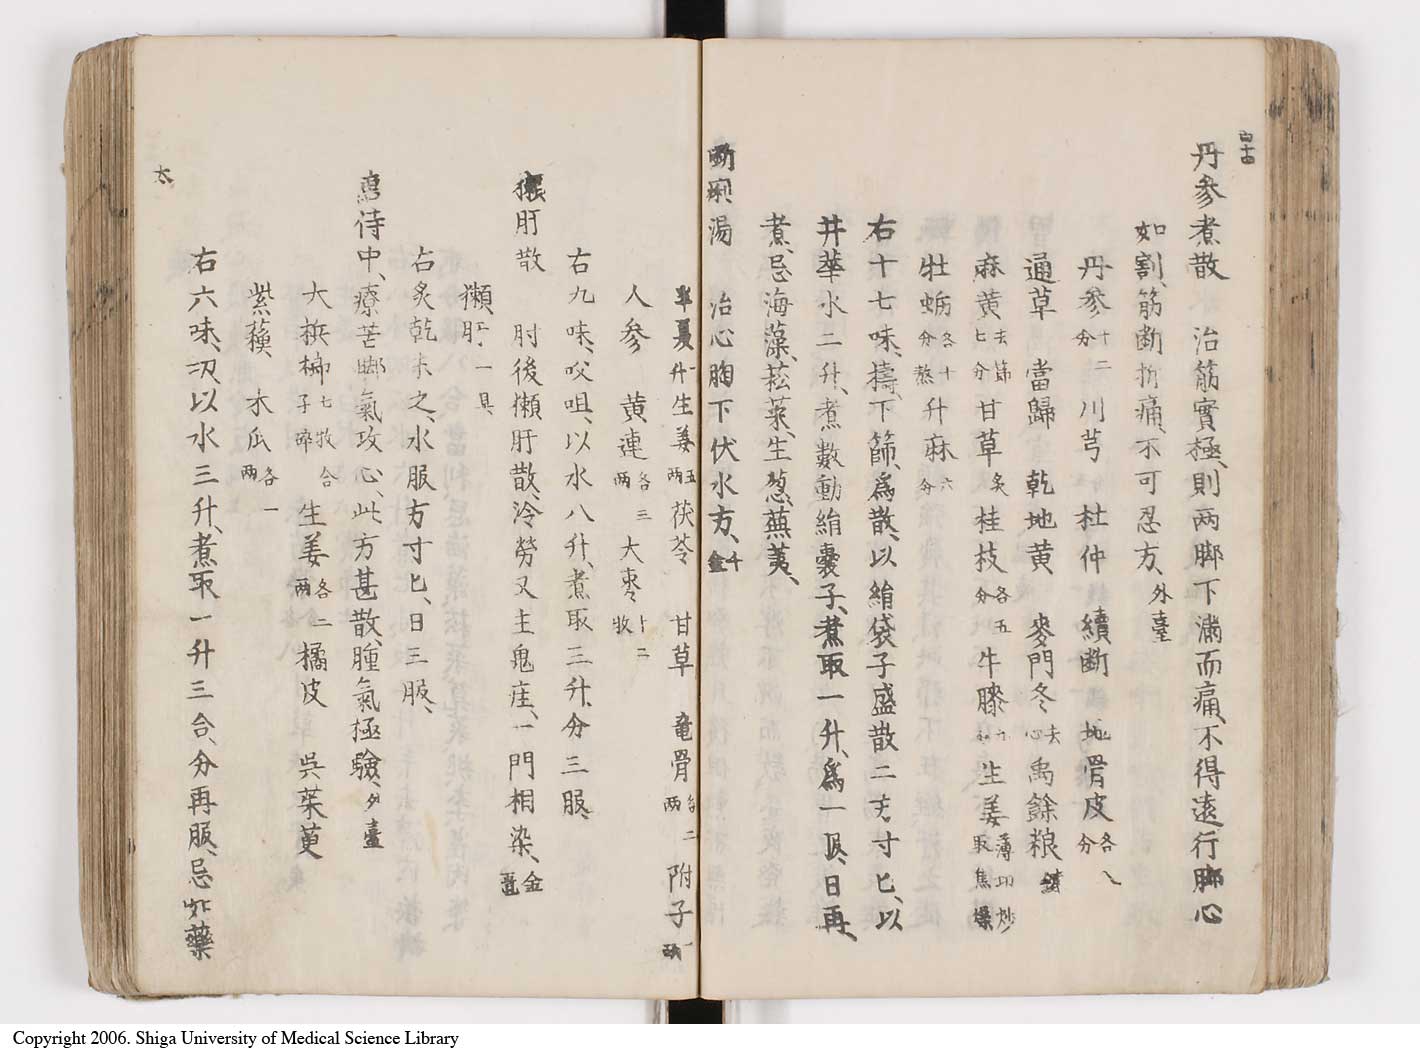 四十四
丹参煮散　治筋實極則両脚下滿而痛不得遠行脚心
如割筋断折痛不可忍方外臺
丹参十二分川芎　杜仲　續断　地骨皮各八分
通草　當歸　乾地黄　麥門冬去心禹餘粮
麻黄去節七分甘草炙桂枝各五分牛膝九分生姜薄切炒取焦燥
牡蛎各十分熬升麻六分
右十七味擣下篩為散以絹袋子盛散二方寸匕以
井華水二升煮數動絹嚢子煮取一升為一服日再
煮忌海藻菘菜生葱蕪荑
断痢湯　治心胸下伏水方千金
半夏一升生姜五両茯苓　甘草　竜骨各二両附子一両
人参　黄連各三両　大棗十二枚
右九味㕮咀以水八升煮取三升分三服
獺肝散　肘後獺肝散冷勞又主鬼疰一門相染金匱
獺肝一具
右炙乾末之水服方寸匕日三服
唐侍中療苦脚氣攻心此方甚散腫氣極験外臺
大梹榔七枚合子碎　生姜各二両橘皮　呉茱萸
紫蘓　木瓜各一両
右六味切以水三升煮取一升三合分再服忌如藥